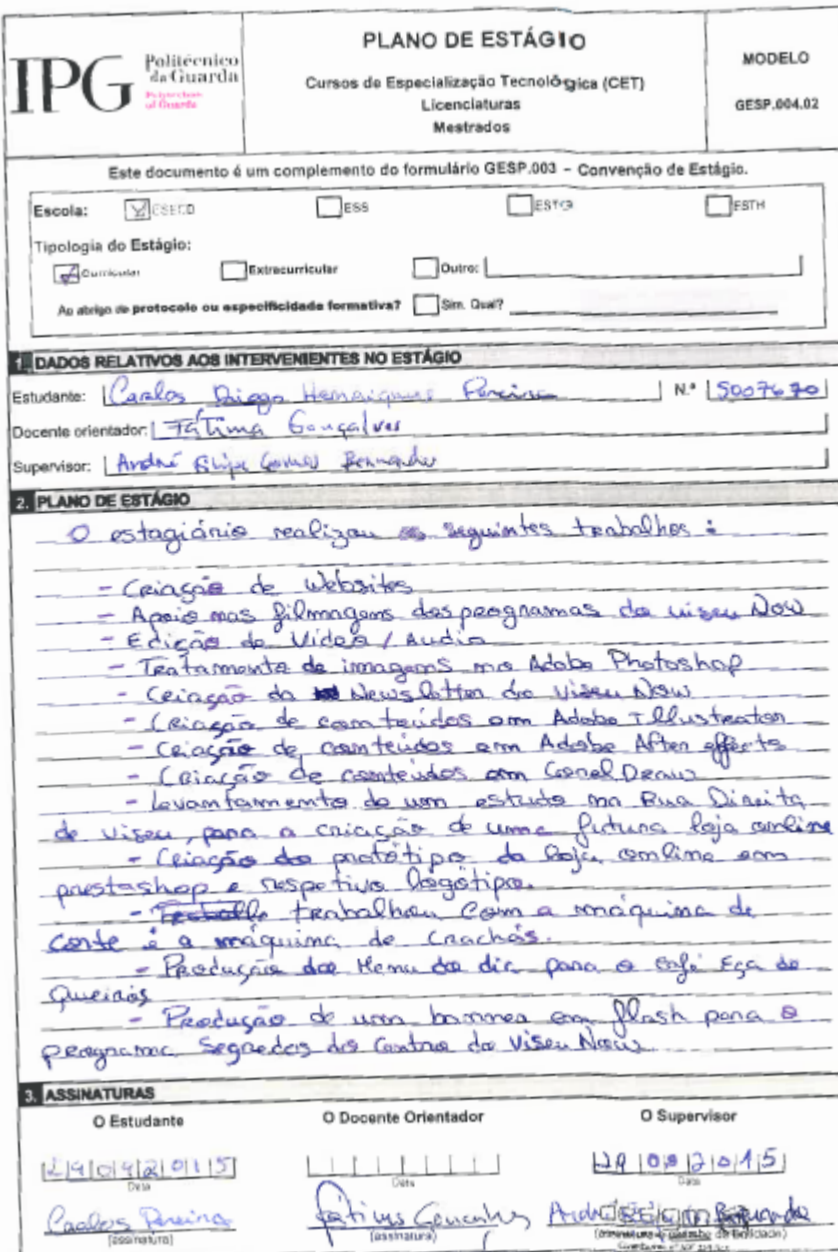 IPG Politécnico da Guarda
Polytechnic of Guarda
PLANO DE ESTÁGIO
Cursos de Especialização Tecnológica (CET)
Licenciaturas
Mestrados
MODELO
GESP.004.02
Este documento é um complemento do formulário GESP.003 – Convenção de Estágio.
Escola: ESECD ESS ESTG ESTH
Tipologia do Estágio:
Curricular Extracurricular Outro:
Ao abrigo de protocolo ou especificidade formativa? Sim. Qual?
1. DADOS RELATIVOS AOS INTERVENIENTES NO ESTÁGIO
Estudante: Carlos Diogo Henriques Pereira N.º 5007670
Docente orientador: Fátima Gonçalves
Supervisor: André Filipe Gomes Bernardes
2. PLANO DE ESTÁGIO
O estagiário realizou os seguintes trabalhos:
- Criação de Websites
- Apoio nas filmagens dos programas da viseu Now
- Edição de Video / Audio
- Tratamento de imagens no Adobe Photoshop
- Criação da Newsletter da Viseu Now
- Criação de conteúdos em Adobe Illustrator
- Criação de conteúdos em Adobe After effects
- Criação de conteúdos em Corel Draw
- levantamento de um estudo na Rua Direita
de viseu, para a criação de uma futura loja online
- Criação do protótipo da loja online em
prestashop e respetivo logótipo.
- trabalhou com a máquina de
corte e a máquina de crachás.
- Produção do Menu do dia para o café Eça de
Queirós
- Produção de um banner em flash para o
programa Segredos do Centro da Viseu Now
3. ASSINATURAS
O Estudante O Docente Orientador O Supervisor
2015 Data 2015
Data Data
Carlos Pereira Fátima Gonçalves André
(assinatura) (assinatura)